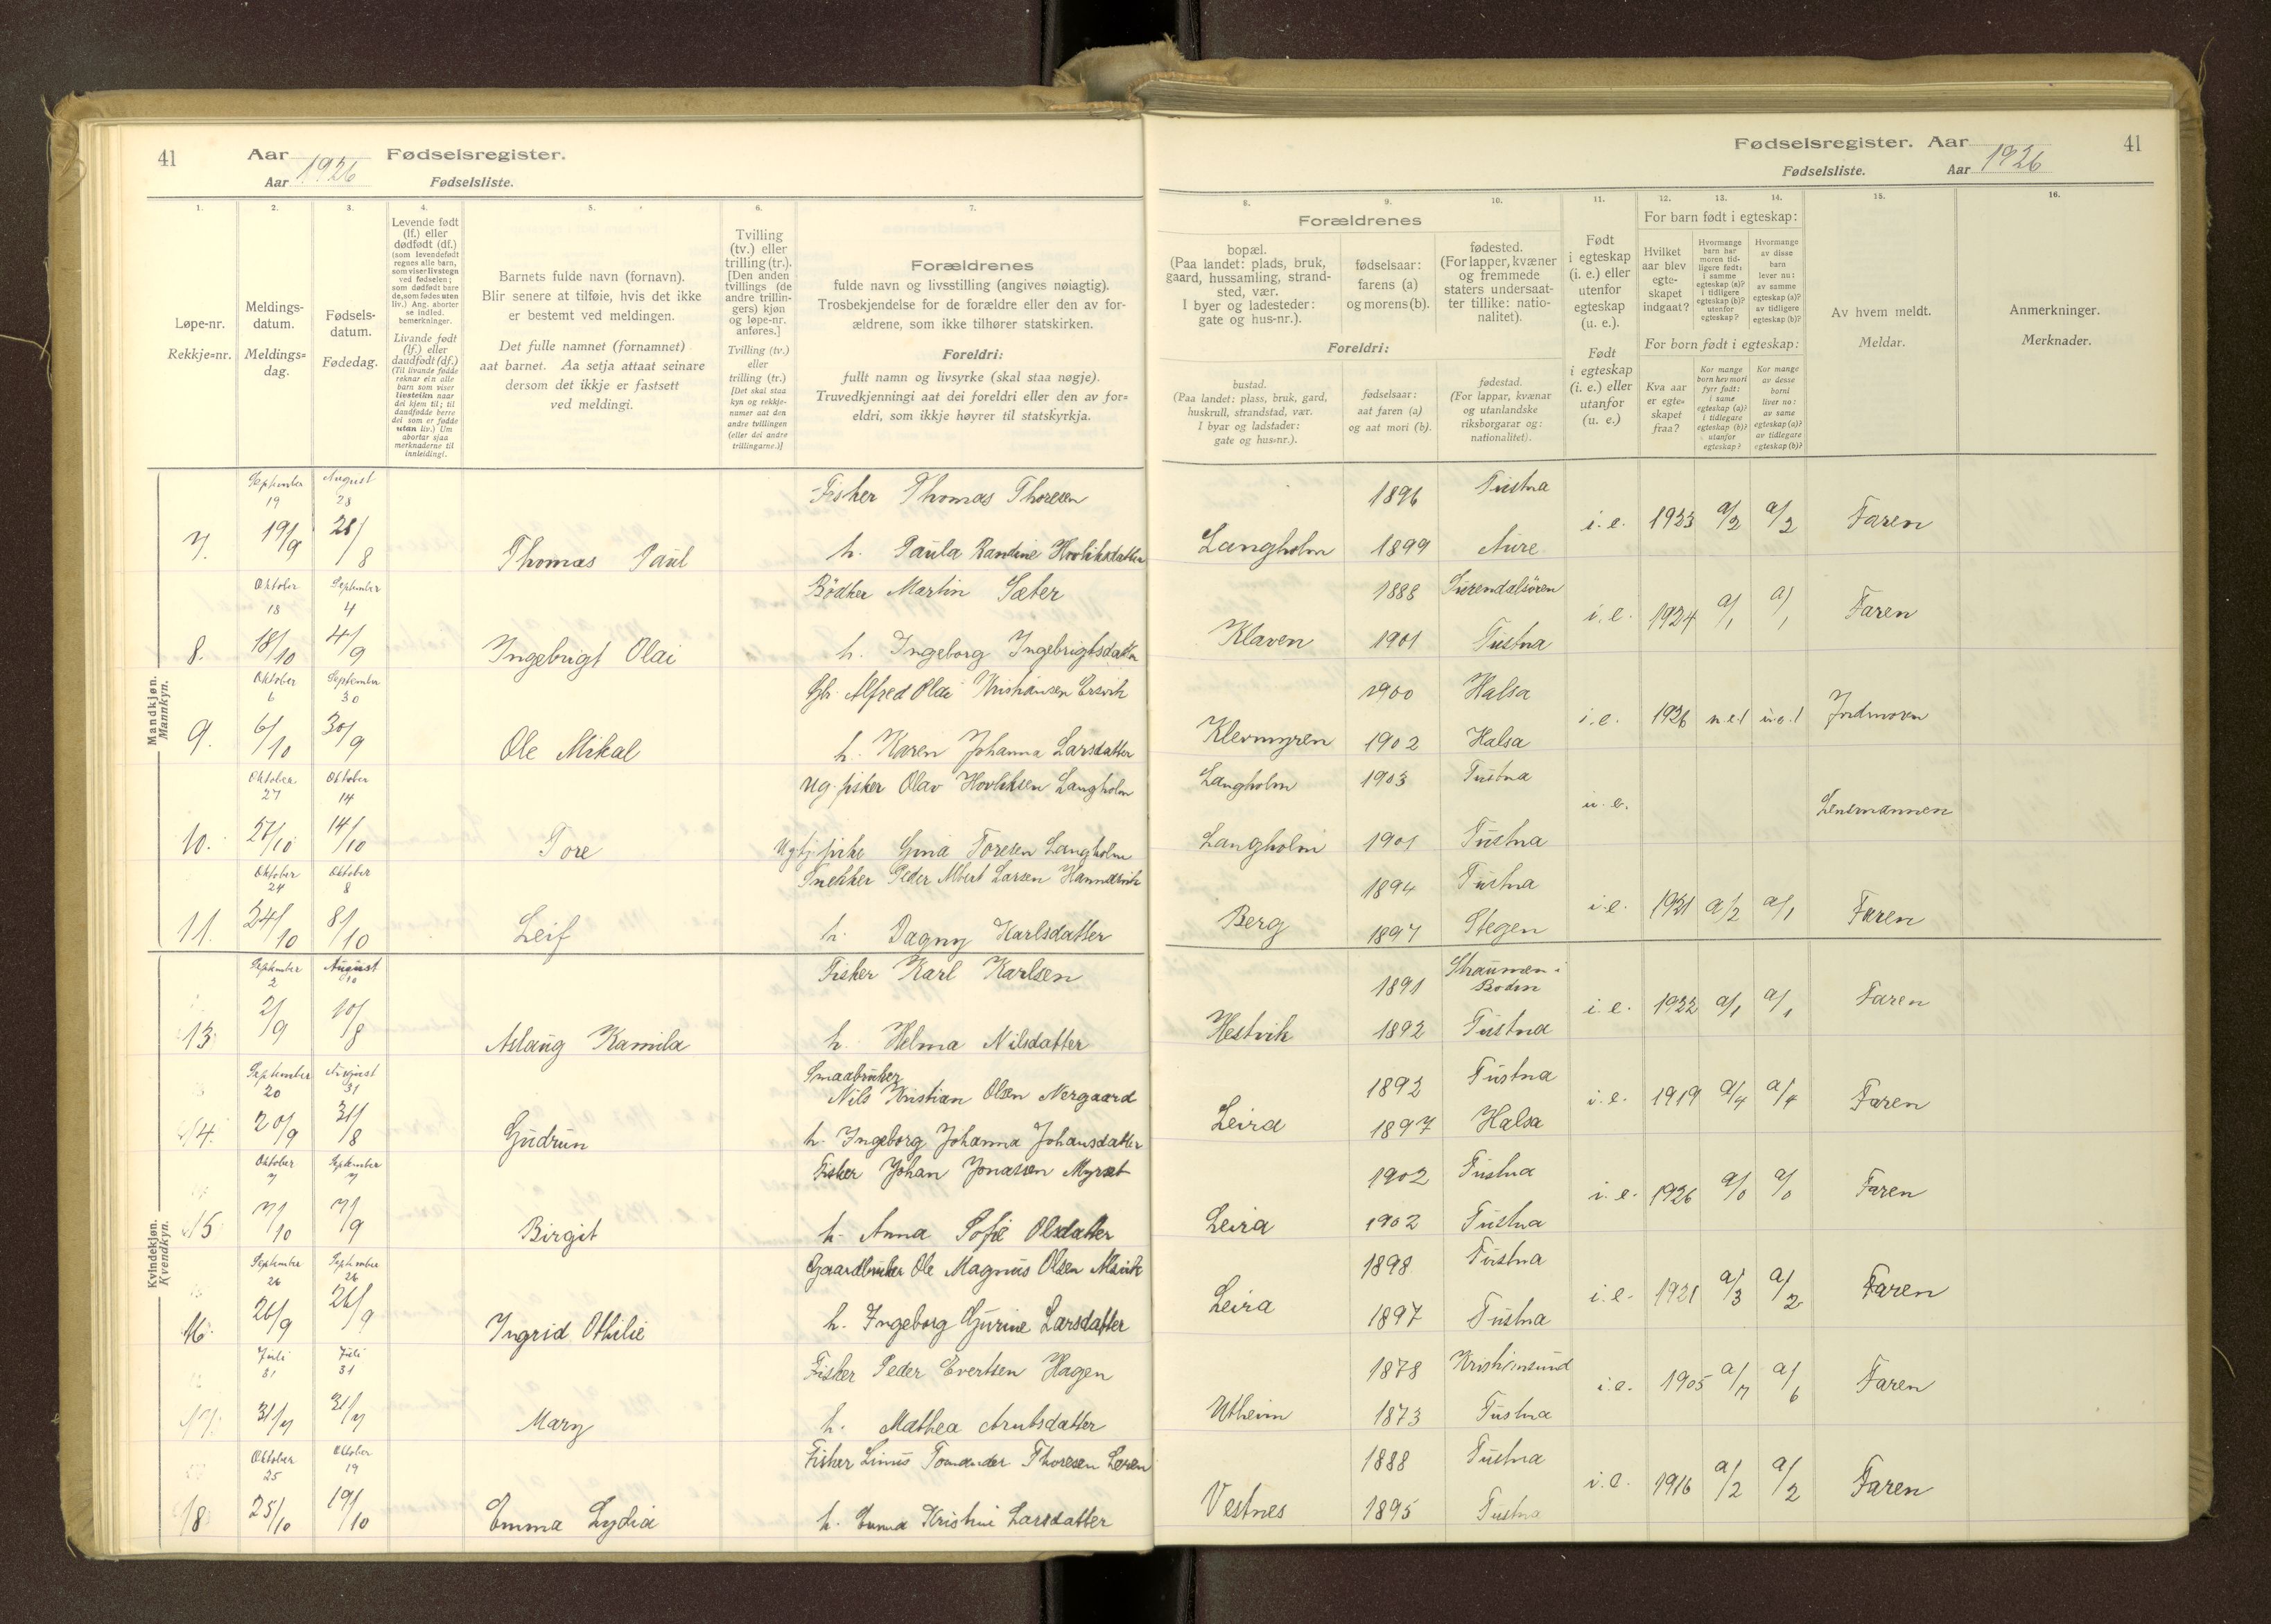 41 Aar 1926 Fødselsregister.
Aar Fødselsliste.
1. 2. 3. 4. 5. 6. 7.
Løpe-nr.
Rekkje=nr.
Meldings-
datum.
Meldings=
dag.
Fødsels-
datum.
Fødedag.
Levende født
(lf.) eller
dødfødt (df.)
(som levendefødt
regnes alle barn,
som viser livstegn
ved fødselen;
som dødfødt bare
de, som fødes uten
liv.) Ang. aborter
se indled.
bemerkninger.
Livande født
(lf.) eller
daudfødt (df.)
(Til livande fødde
reknar ein alle
barn som viser
livsteikn naar
dei kjem til; til
daudfødde berre
dei som er fødde
utan liv.) Um
abortar sjaa
merknaderne til
innleidingi.
Barnets fulde navn (fornavn).
Blir senere at tilføie, hvis det ikke
er bestemt ved meldingen.
Det fulle namnet (fornamnet)
aat barnet. Aa setja attaat seinare
dersom det ikkje er fastsett
ved meldingi.
Tvilling
(tv.) eller
trilling (tr.).
[Den anden
tvillings (de
andre trillin-
gers) kjøn
og løpe-nr.
anføres.]
Tvilling (tv.)
eller
trilling (tr.)
[Det skal staa
kyn og rekkje-
numer aat den
andre tvillingen
(eller dei andre
trillingarne.)]
Forældrenes
fulde navn og livsstilling (angives nøiagtig).
Trosbekjendelse for de forældre eller den av for-
ældrene, som ikke tilhører statskirken.
Foreldri:
fullt namn og livsyrke (skal staa nøgje).
Truvedkjenningi aat dei foreldri eller den av for=
eldri, som ikkje høyrer til statskyrkja.
Mandkjøn.
Mannkyn.
September August
19 28
Fisker Thomas Thoresen
7. 19/9 28/8 Thomas Paul h. Paula Randine
Oktober September
18 4
Bödker Martin Sæter
8. 18/10 4/9 Ingebrigt Olai h. Ingeborg Ingebrigtsdatter
Oktober September
6 30
Gbr. Alfred Olai Kristiansen Ersvik
9. 6/10 30/9 Ole Mikal h. Karen Johanna Larsdatter
Oktober Oktober
27 14
Ug. fisker Olav Hovliksen Langholm
10. 27/10 14/10 Tore Gina Toresen Langholm
Oktober Oktober
24 8
Snekker Peder Albert Larsen
11. 24/10 8/10 Leif h. Dagny Karlsdatter
Kvindekjøn.
Kvendkyn.
September August
2 10
Fisker Karl Karlsen
13. 2/9 10/8 Aslaug Kamila h. Helma Nilsdatter
September August
20 31
Smaabruker
Nils Kristian Olsen Nergaard
14. 20/9 31/8 Gudrun h. Ingeborg Johanna Johansdatter
Oktober September
7 7
Fisker Johan Jonassen Myrset
15 7/10 7/9 Birgit h. Anna Sofie Olsdatter
September September
26 26
Gaardbruker Ole Magnus Olsen
16. 26/9 26/9 Ingrid Othilie h. Ingeborg Gurine Larsdatter
Juli Juli
31 31
Fisker Peder Evertsen Hagen
17. 31/7 31/7 Mary h. Mathea Arntsdatter
Oktober Oktober
25 19
Fisher Linus Thoresen Leren
18 25/10 19/10 Emma Lydia h. Emma Kristine Larsdatter
Fødselsregister. Aar 1926 41
Fødselsliste. Aar
8. 9. 10. 11. 12. 13. 14. 15. 16.
Forældrenes
bopæl.
(Paa landet: plads, bruk,
gaard, hussamling, strand-
sted, vær.
I byer og ladesteder:
gate og hus-nr.).
fødselsaar:
farens (a)
og morens (b).
fødested.
(For lapper, kvæner
og fremmede
staters undersaat-
ter tillike: natio-
nalitet).
Foreldri:
bustad.
(Paa landet: plass, bruk, gard,
huskrull, strandstad, vær.
I byar og ladstader:
gate og hus=nr.).
fødselsaar:
aat faren (a)
og aat mori (b).
fødestad.
(For lappar, kvænar
og utanlandske
riksborgarar og:
nationalitet).
Født
i egteskap
(i. e.) eller
utenfor
egteskap
(u. e.).
Født
i egteskap
(i. e.) eller
utanfor
(u. e.)
For barn født i egteskap:
Hvilket
aar blev
egte-
skapet
indgaat?
Hvormange
barn har
moren tid-
ligere født:
i samme
egteskap (a)?
i tidligere
egteskap (b)?
utenfor
egteskap?
Hvormange
av disse
barn
lever nu:
av samme
egteskap (a)?
av tidligere
egteskap (b)?
For born født i egteskap:
Kva aar
er egte=
skapet
fraa?
Kor mange
born hev mori
fyrr født:
i same
egteskap (a)?
i tidlegare
egteskap (b)?
utanfor
egteskap?
Kor mange
av desse
borni
liver no:
av same
egteskap (a)?
av tidlegare
egteskap (b)?
Av hvem meldt.
Meldar.
Anmerkninger.
Merknader.
1896 Tustna
Langholm 1899 Aure i. e. 1923 a/2 a/2 Faren
1888 Surendalsören
Klaven 1901 Tustna i. e. 1924 a/1 a/1 Faren
1900 Halsa
Klevmyren 1902 Halsa i. e. 1926 u.e.1 u.e.1 Jordmoren
Langholm 1903 Tustna
Langholm 1901 Tustna u. e. Lensmannen
1894 Tustna
Berg 1897 Stegen i.e. 1921 a/2 a/1 Faren
1891 Straumen i
Bodin
Hestvik 1892 Tustna i. e. 1922 a/1 a/1 Faren
1892 Tustna
Leira 1897 Halsa i. e. 1919 a/4 a/4 Faren
1902 Tustna
Leira 1902 Tustna i. e. 1926 a/0 a/0 Faren
1898 Tustna
Leira 1897 Tustna i. e. 1921 a/3 a/2 Faren
1878 Kristiansund
Utheim 1873 Tustna i. e. 1905 a/7 a/6 Faren
1888 Tustna
Vestnes 1895 Tustna i. e. 1916 a/2 a/2 Faren